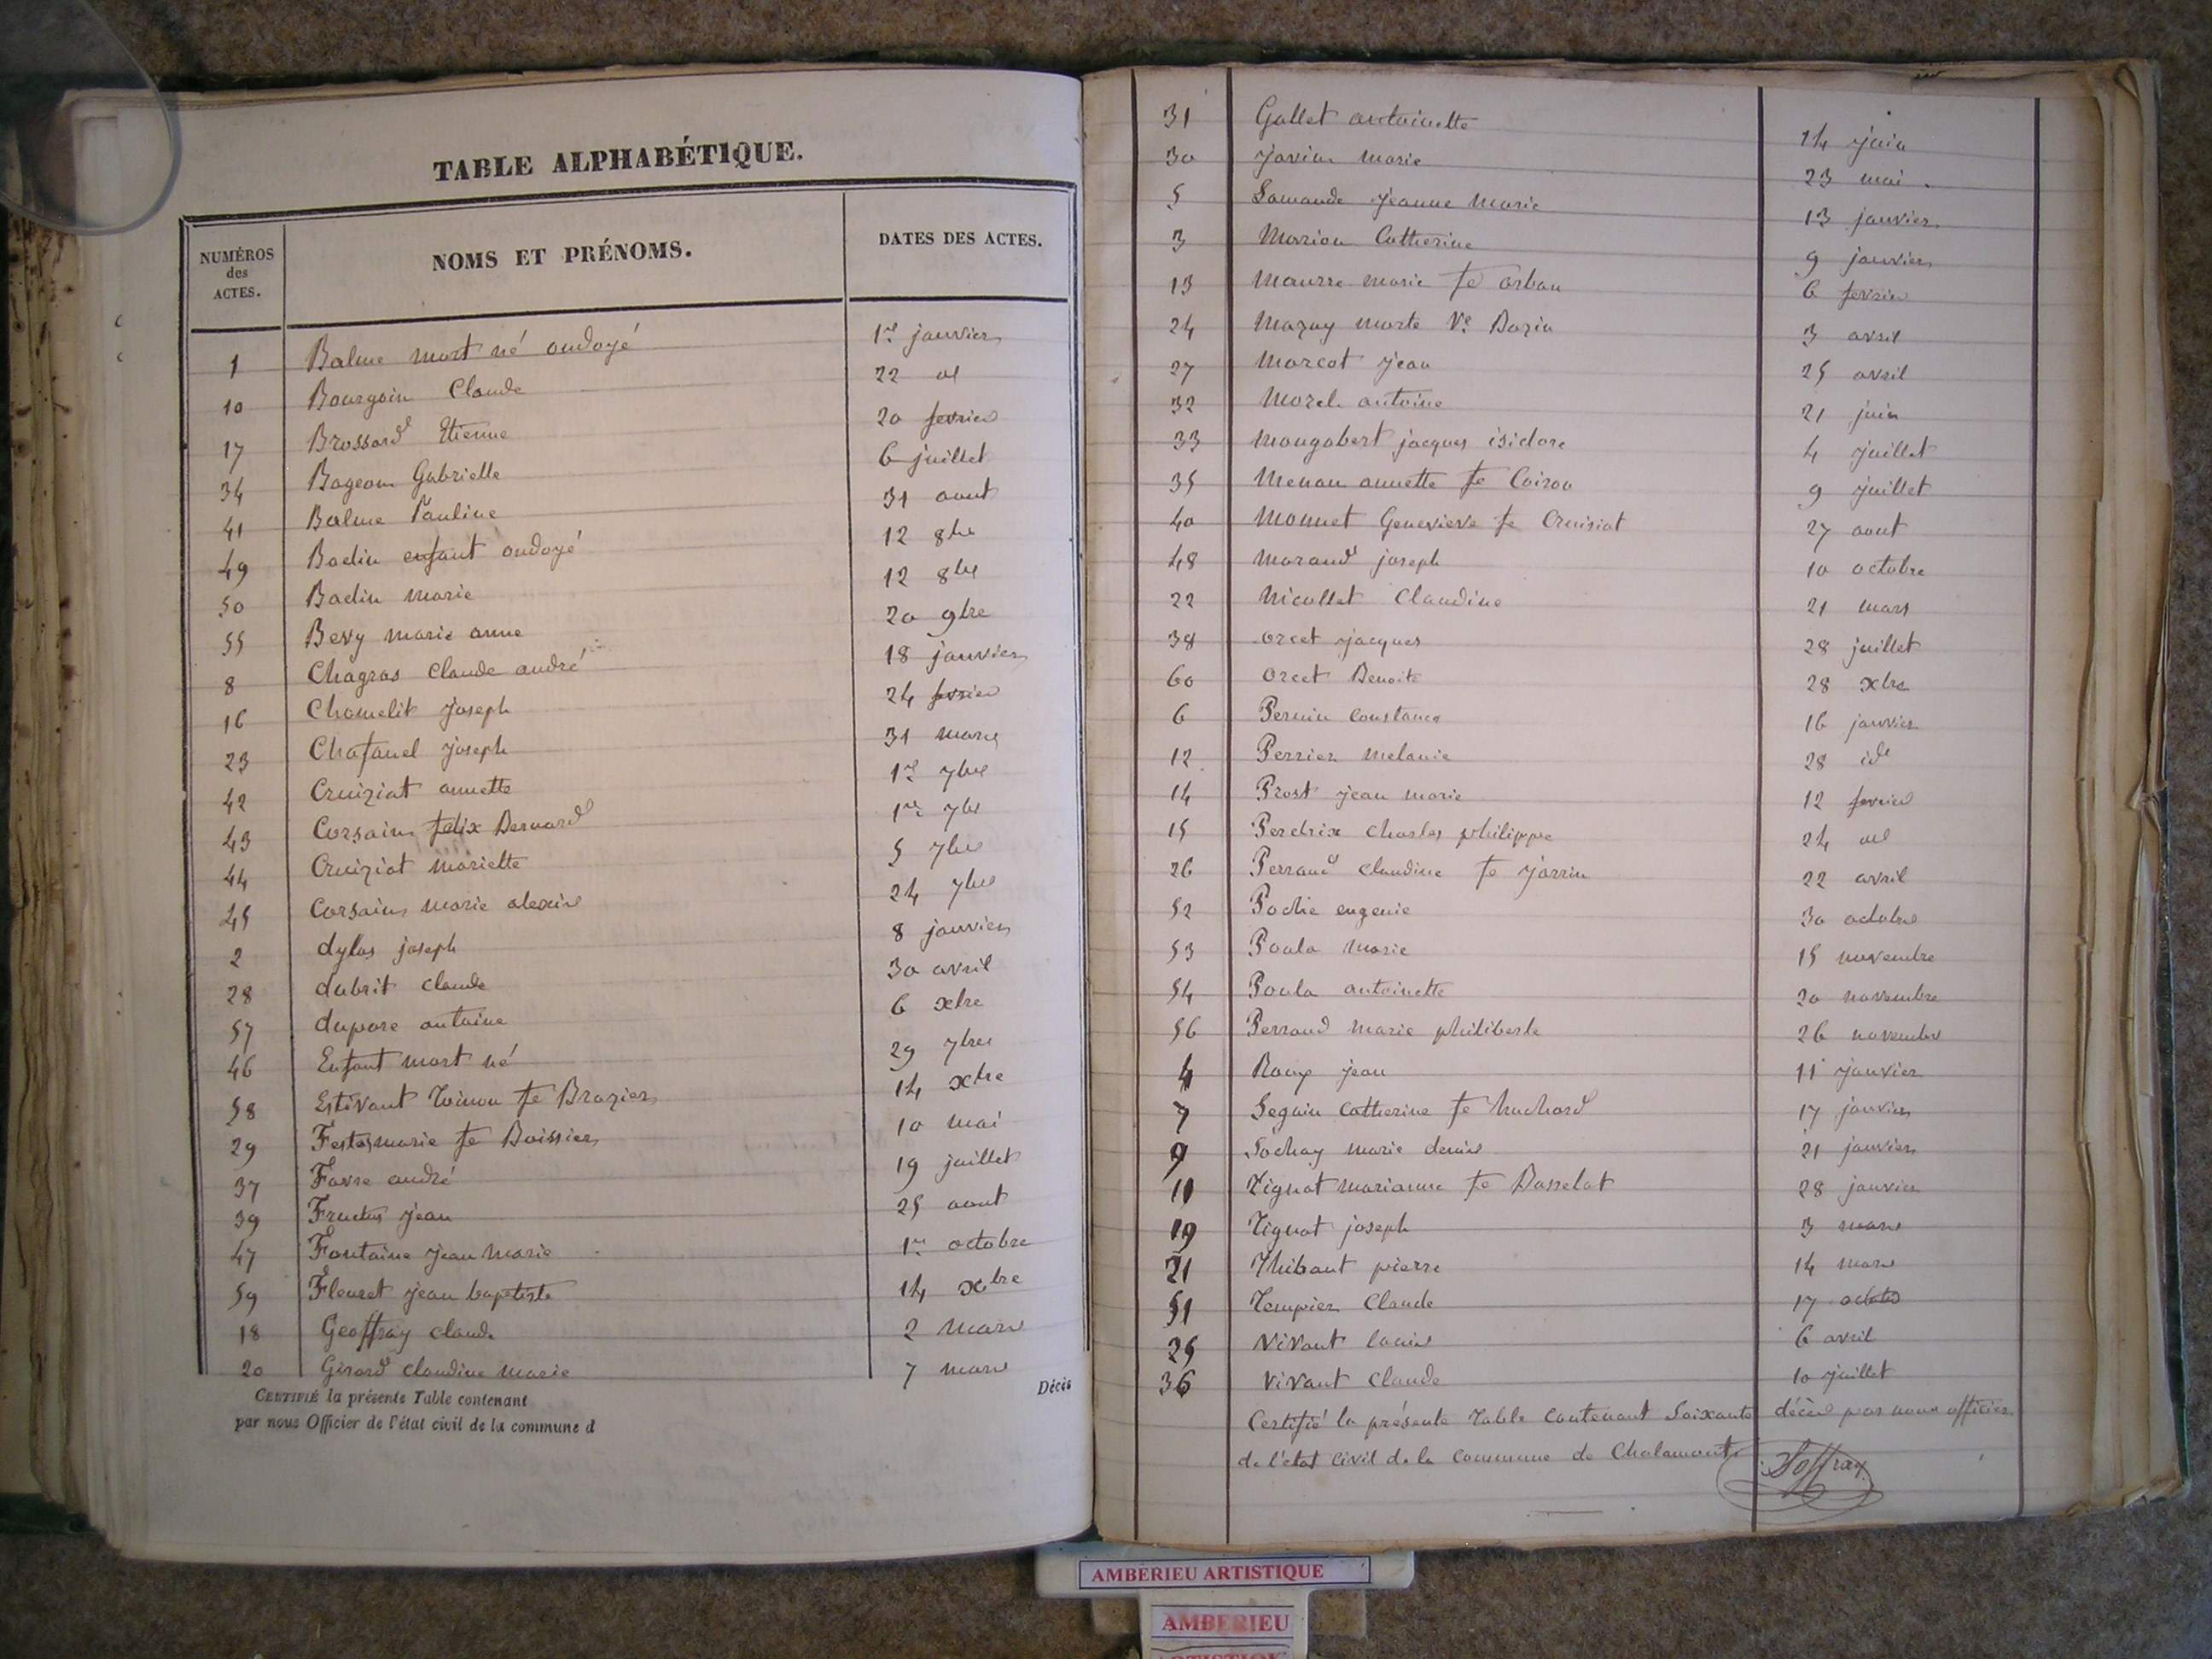 TABLE ALPHABÉTIQUE.
NUMÉROS des ACTES. NOMS ET PRÉNOMS. DATES DES ACTES.
1 Balme mort né ondoyé 1er janvier
10 Bourgoin Claude 22 d
17 Brossard Etienne 20 fevrier
34 Bageon Gabrielle 6 juillet
41 Balme Pauline 31 aout
49 Badin enfant ondoyé 12 8bre
50 Badin marie 12 8bre
55 Bevy marie anne 20 9bre
8 Chagras Claude andré 18 janvier
16 Chamelit joseph 24 fevrier
23 Chatanel joseph 31 mars
42 Cruiziat annette 1er 7bre
43 Corsain felix Bernard 1er 7bre
44 Cruiziat mariette 5 7bre
45 Corsain marie alexis 24 7bre
2 dylas joseph 8 janvier
28 dubrit claude 30 avril
57 dupore antoine 6 xbre
46 Enfant mort né 29 7bre
58 Estivant Toinon fe Brazier 14 xbre
29 Festas marie fe Boissier 10 mai
37 Favre andré 19 juillet
39 Fructus jean 25 aout
47 Fontaine jean marie 1er octobre
59 Fleuret jean baptiste 14 xbre
18 Geoffray claude 2 mars
20 Girard claudine marie 7 mars
CERTIFIÉ la présente Table contenant Décès
par nous Officier de l'état civil de la commune d
31 Gallet antoinette 14 juin
30 Javin marie 23 mai
5 Lamande jeanne marie 13 janvier
3 Marion Catherine 9 janvier
13 Maurre marie fe orban 6 fevrier
24 Mazuy marte Ve Bazin 3 avril
27 Marcot jean 25 avril
32 Morel antoine 21 juin
33 Mongobert jacques isidore 4 juillet
35 Menan annette fe Coiron 9 juillet
40 Monnet Genevieve fe Cruisiat 27 aout
48 Morand joseph 10 octobre
22 Nicollet Claudine 21 mars
38 orcet jacques 28 juillet
60 orcet Benoite 28 xbre
6 Pernin constance 16 janvier
12 Perrier melanie 28 id
14 Prost jean marie 12 fevrier
15 Perdrix charles philippe 24 d
26 Perraud claudine fe jarrin 22 avril
52 Poche eugenie 30 octobre
53 Poula marie 15 novembre
54 Poula antoinette 20 novembre
56 Perraud marie philiberte 26 novembre
4 Roux jean 11 janvier
7 Seguin catherine fe huchard 17 janvier
9 Sochay marie denis 21 janvier
11 Tignat marianne fe Basselat 28 janvier
19 Tignat joseph 3 mars
21 Thibaut pierre 14 mars
51 Tempier Claude 17 octobre
25 Vivant louis 6 avril
36 Vivant Claude 10 juillet
Certifié la présente table contenant Soixante décès par nous officier
de l'état civil de la commune de Chalamont
AMBERIEU ARTISTIQUE
AMBERIEU